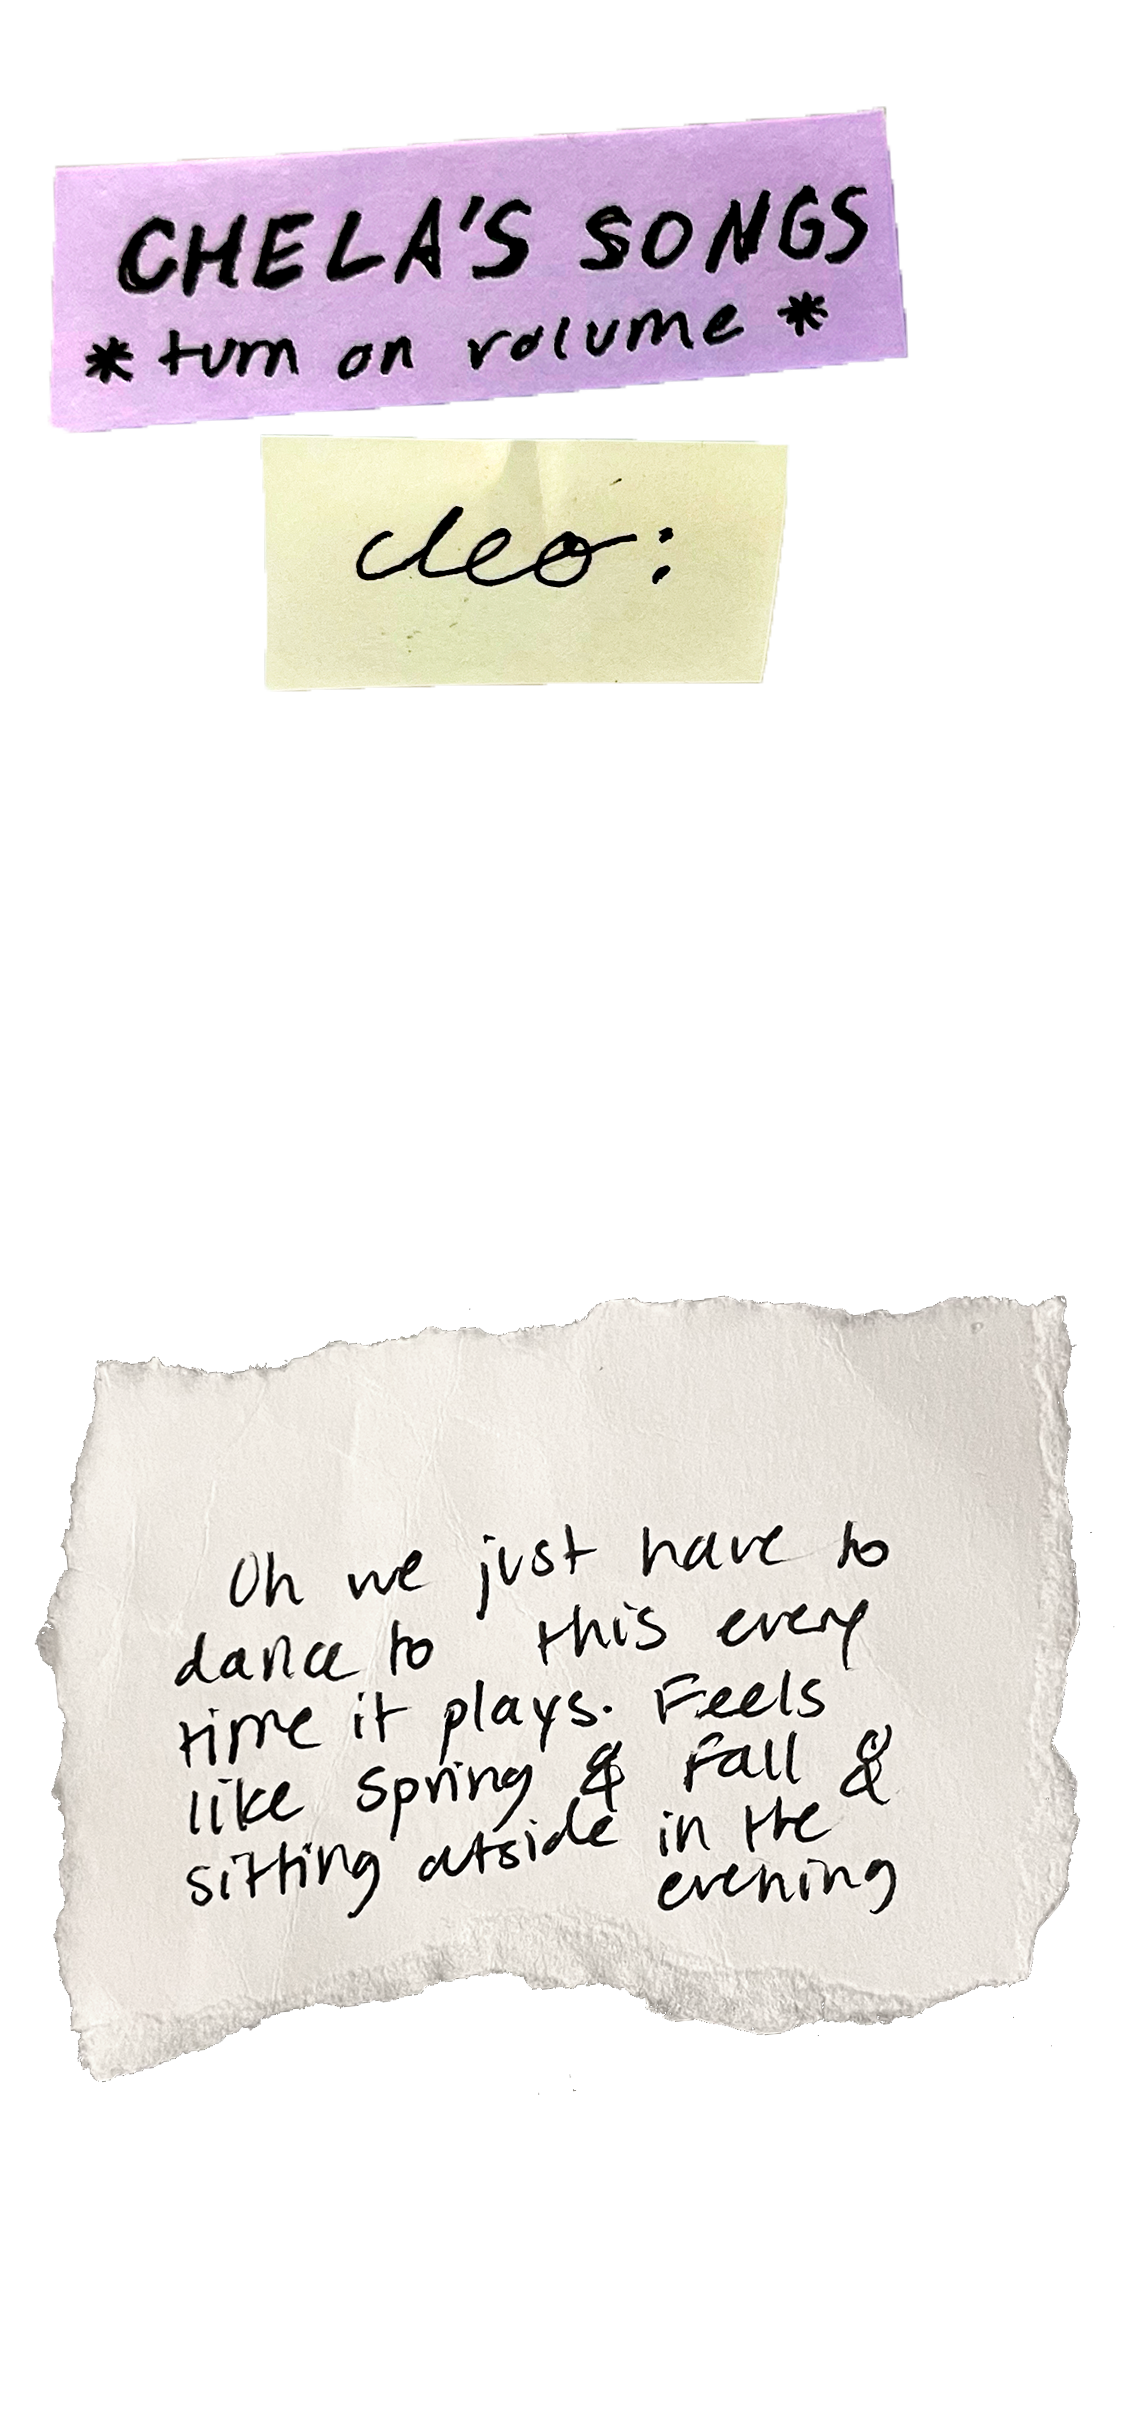 CHELA'S SONGS
* turn on volume *
cleo:
Oh we just have to
dance to this every
time it plays. Feels
like spring & Fall &
sitting outside in the
evening